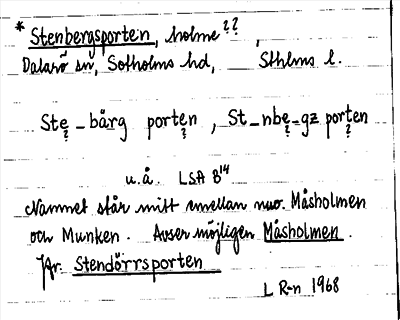 * Stenbergsporten, holme??,
Dalarö sn, Sotholms hd, Sthlms l.
Ste̤-bårg porten, St-nbe̤-gz porten
u.å. LSA B¹⁴
Namnet står mitt emellan nuv. Måsholmen
och Munken. Avser möjligen Måsholmen.
Jfr. Stendörrsporten
L R-n 1968